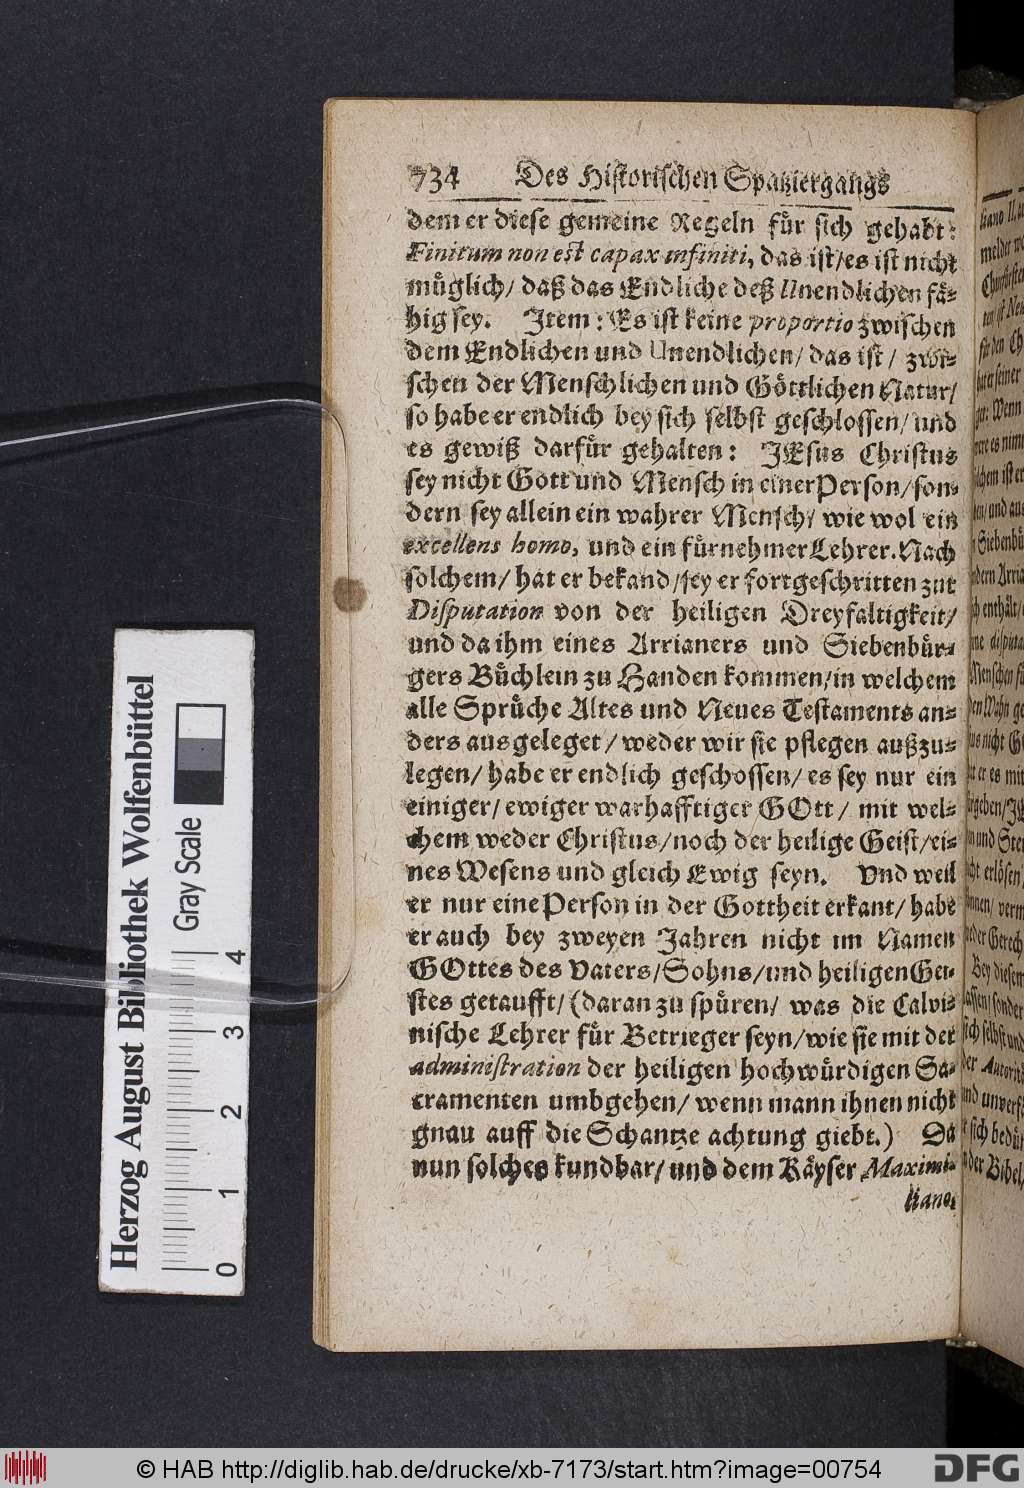 734 Des Historischen Spatziergangs
dem er diese gemeine Regeln fuͤr sich gehabt:
Finitum non est capax infiniti, das ist/es ist nicht
muͤglich/ daß das Endliche deß Unendlichen faͤ-
hig sey. Item: Es ist keine proportio zwischen
dem Endlichen und Unendlichen/ das ist/ zwi-
schen der Menschlichen und Goͤttlichen Natur/
so habe er endlich bey sich selbst geschlossen/ und
es gewiß darfuͤr gehalten: JEsus Christus
sey nicht Gott und Mensch in einer Person/ son-
dern sey allein ein wahrer Mensch/ wie wol ein
excellens homo, und ein fuͤrnehmer Lehrer. Nach
solchem/ hat er bekand/ sey er fortgeschritten zur
Disputation von der heiligen Dreyfaltigkeit/
und da ihm eines Arrianers und Siebenbuͤr-
gers Buͤchlein zu Handen kommen/in welchem
alle Spruͤche Altes und Neues Testaments an-
ders ausgeleget/ weder wir sie pflegen außzu-
legen/ habe er endlich geschossen/ es sey nur ein
einiger/ ewiger warhafftiger GOtt/ mit wel-
chem weder Christus/noch der heilige Geist/ei-
nes Wesens und gleich Ewig seyn. Und weil
er nur eine Person in der Gottheit erkant/ habe
er auch bey zweyen Jahren nicht im Namen
GOttes des Vaters/Sohns/und heiligen Gei-
stes getaufft/ (daran zu spuͤren/ was die Calvi-
nische Lehrer fuͤr Betrieger seyn/ wie sie mit der
administration der heiligen hochwuͤrdigen Sa-
cramenten umbgehen/ wenn mann ihnen nicht
gnau auff die Schantze achtung giebt.) Da
nun solches kundbar/ und dem Kaͤyser Maximi-
liano.
liano II.
melder
Churfürste
ten/ ist
für den Ch
hat er seiner
Wenn
es nim
ist er
und aus
Siebenbü
dern Arria
enthält/
disputa
Menschen
Wahn
nicht
er es mit
geben/
und
erlösen
verm
der Gerech
Bey diesem
lassen/ sonder
sich selbst und
der Autorit
und unverf
sich bedü
der Bibel
Herzog August Bibliothek Wolfenbüttel
Gray Scale
0 1 2 3 4
© HAB http://diglib.hab.de/drucke/xb-7173/start.htm?image=00754
DFG